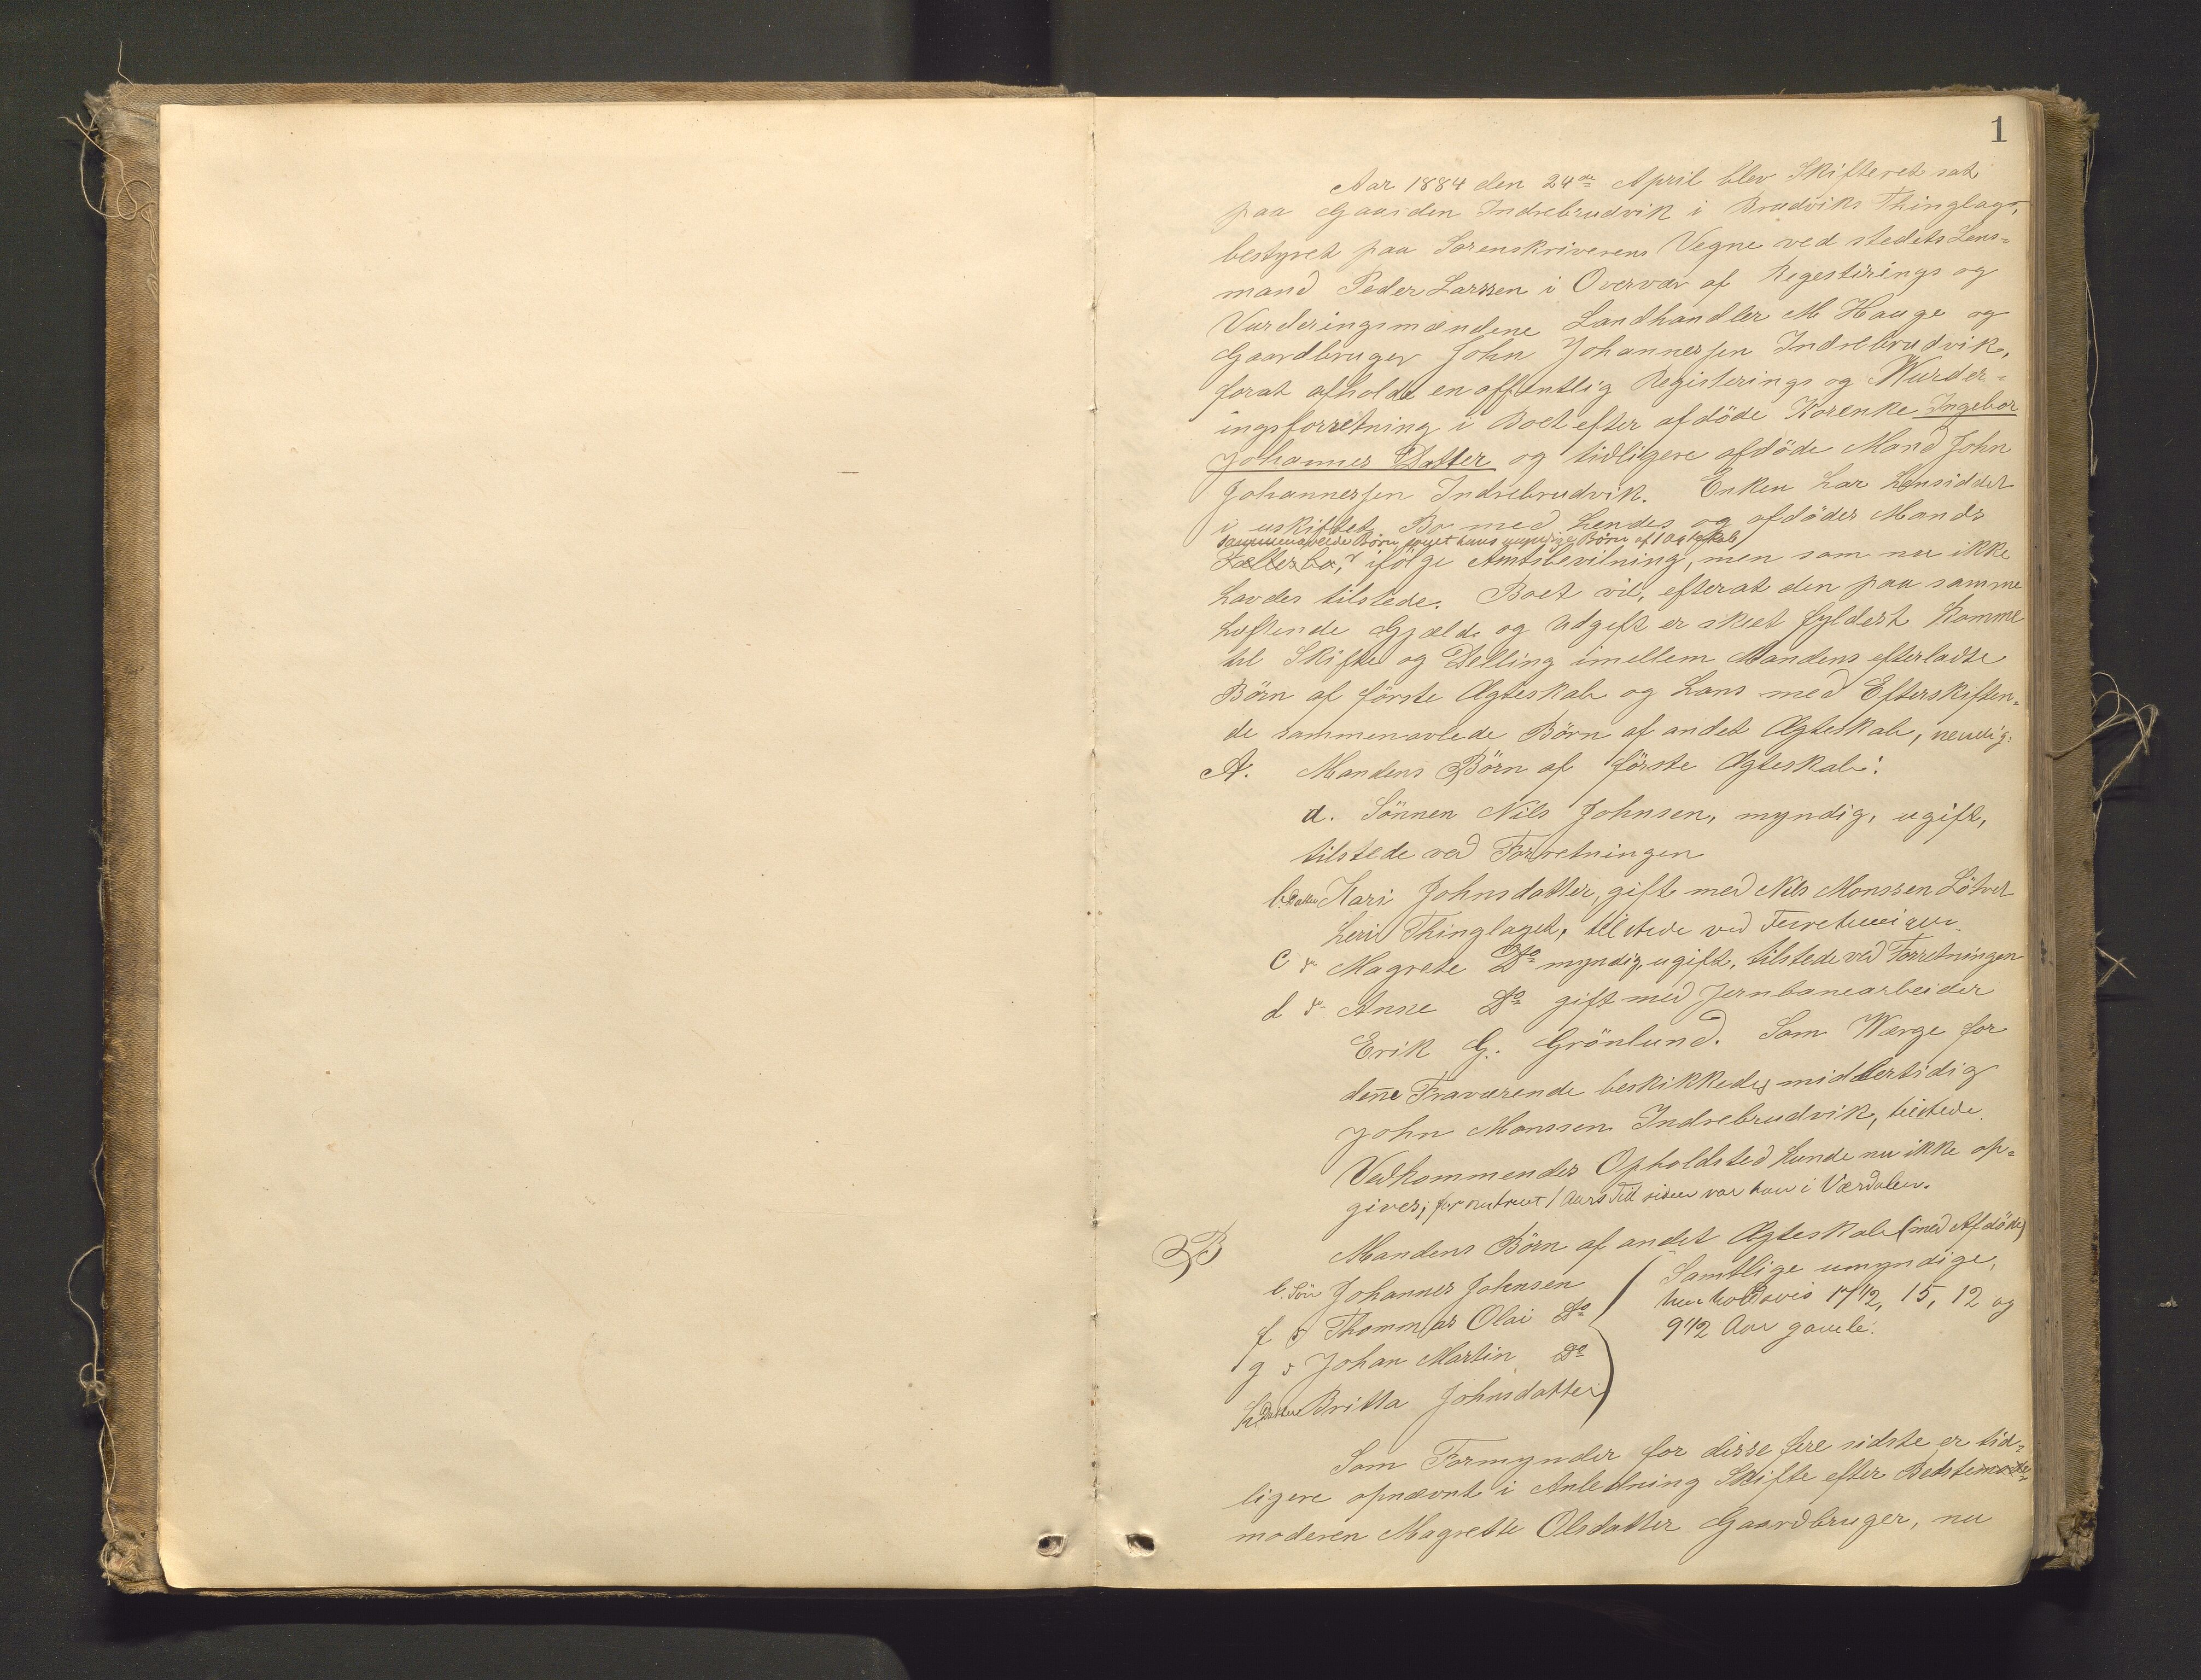 1
Aar 1884 den 24de April blev Skifteret sat
paa Gaarden Indrebrudvik i Brudviks Thinglag,
bestyret paa Sorenskriverens Vegne ved stedets Lens-
mand Peder Larssen i Overvær af Regestirings og
Vurderingsmændene Landhandler M Hauge og
Gaardbruger John Johannessen Indrebrudvik,
forat afholde en offentlig Registerings og Wurder-
ingsforretning i Boet efter afdöde Korenke Ingebor
Johannes Datter og tidligere afdöde Mand John
Johannessen Indrebrudvik. Enken har hensiddet
i uskiftet Bo med hendes og afdödes Mands
sammenavlede Börn samt hans Börn af 1 Ægteskab
Fællesbo, ifölge Amtsbevilning, men som nu ikke
havdes tilstede. Boet vil, efterat den paa samme
heftende Gjæld og Udgift er skeet fyldest komme
til Skifte og Delling imellem Mandens efterladte
Börn af förste Ægteskab og hans med Efterskiften-
de sammenavlede Börn af andet Ægteskab, nemlig:
A. Mandens Börn af förste Ægteskab:
a. Sönnen Nils Johnsen, myndig, ugift,
tilstede ved Forretningen
b. Datter Kari Johnsdatter, gift med Nils Monssen Lötvet
heri Thinglaget, tilstede ved Forretningen.
c " Magrete Do myndig, ugift, tilstede ved Forretningen
d " Anne Do gift med Jernbanearbeider
Erik G. Grönlund. Som Værge for
denne Fraværende beskikkedes midlertidig
John Monssen Indrebrudvik, tilstede.
Vedkommendes Opholdsted kunde nu ikke op-
gives; for omtrent 1 Aars Tid siden var han i Værdalen.
B Mandens Börn af andet Ægteskab (med Afdöde)
e. Sön Johannes Johnsen
f " Thommas Olai Do
g " Johan Martin Do
h. Datter Britta Johnsdatter
Samtlige umyndige,
henholdsvis 17 1/2, 15, 12 og
9 1/2 Aar gamle.
Som Formynder for disse fire sidste er tid-
ligere opnævnt i Anledning Skifte efter Bedstemode-
moderen Magrette Olsdatter Gaardbruger, nu